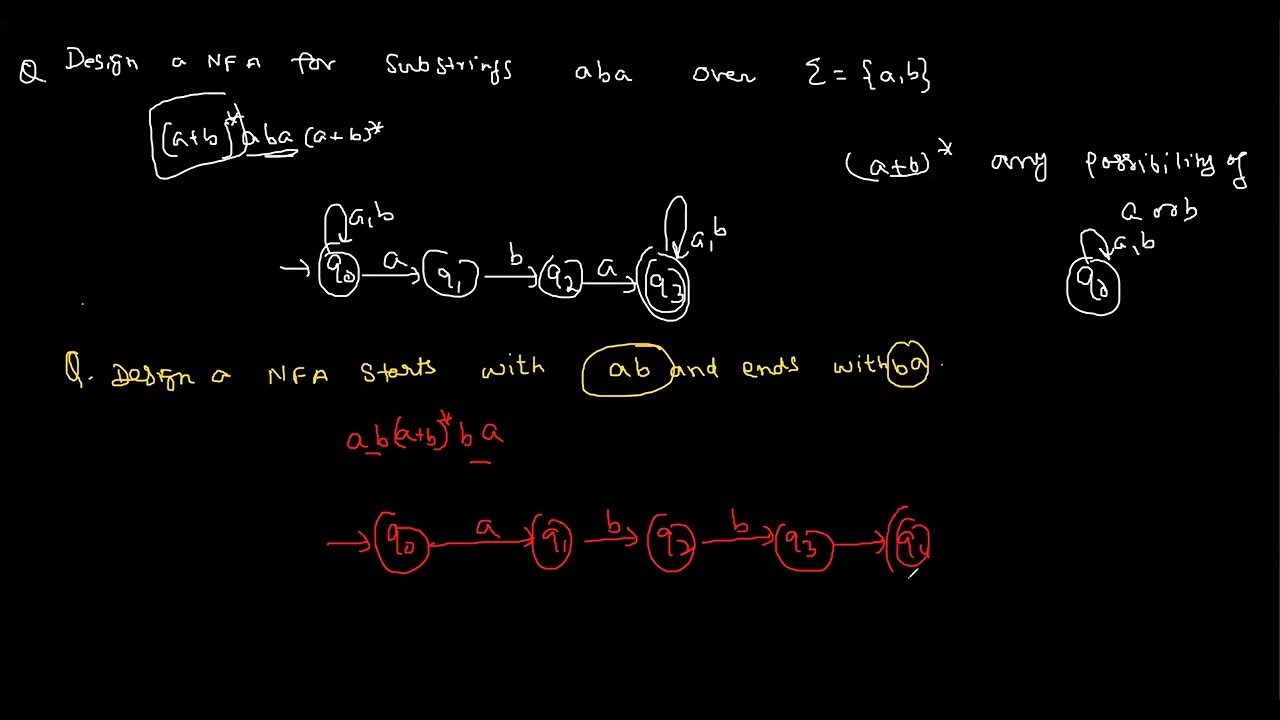 Q Design a NFA for substrings aba over Σ = {a,b}
(a+b)* aba (a+b)*
(a+b)* any possibility of
a or b
a,b
q0
a,b a,b
q0 a q1 b q2 a q3
Q. Design a NFA starts with ab and ends with ba.
ab(a+b)* ba
q0 a q1 b q2 b q3